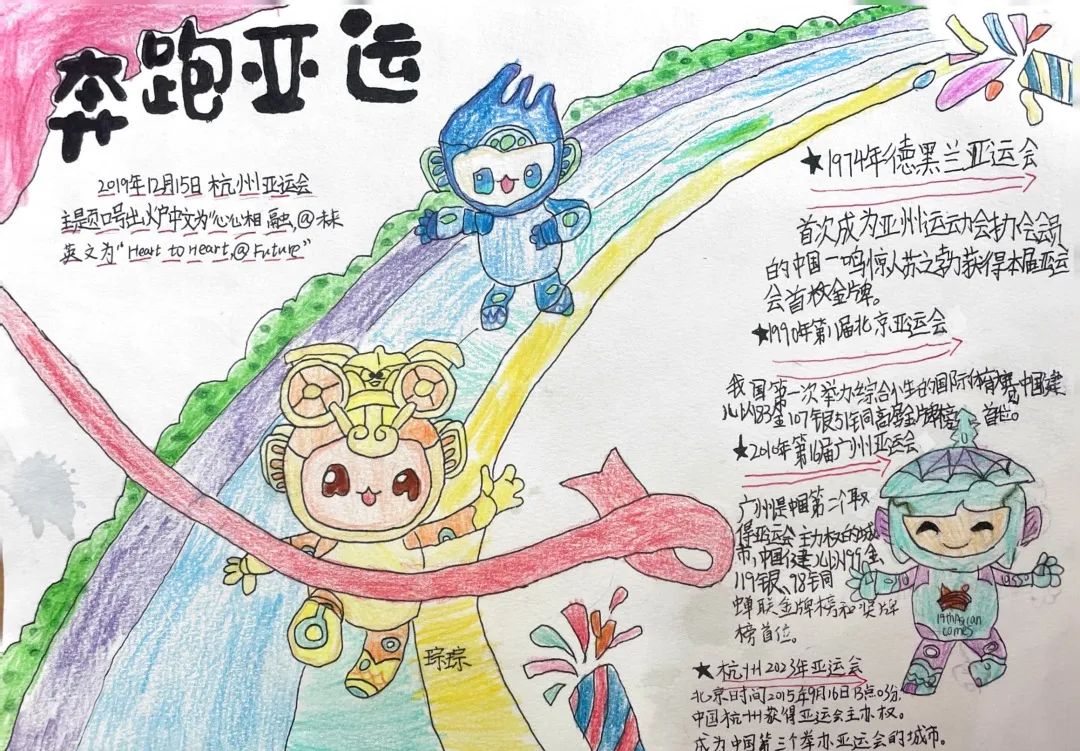 奔跑亚运
2019年12月15日杭州亚运会
主题口号出炉中文为"心心相融,@未来
英文为"Heart to Heart,@Future"
★1974年德黑兰亚运会
首次成为亚州运动会协会会员
的中国一鸣惊人苏之勃获得本届亚运
会首枚金牌。
★1990年第11届北京亚运会
我国第一次举办综合性的国际体育赛,中国健
儿以183金107银51铜高居金牌榜首位。
★2010年第16届广州亚运会
广州是中国第二个取
得亚运会主办权的城
市,中国健儿以199金
119银、98铜
蝉联金牌榜和奖牌
榜首位。
★杭州2023年亚运会
北京时间2015年9月16日13点0分,
中国杭州获得亚运会主办权。
成为中国第三个举办亚运会的城市。
琮琮
19th Asian
Games